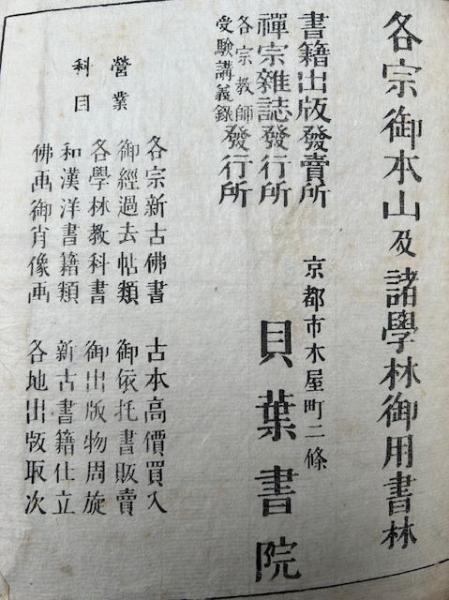 各宗御本山及諸學林御用書林
書籍出版發賣所
禪宗雜誌發行所
各宗教師受驗講義錄發行所
京都市木屋町二條
貝葉書院
營業科目
各宗新古佛書 古本高價買入
御經過去帖類 御依托書販賣
各學林教科書 御出版物周旋
和漢洋書籍類 新古書籍仕立
佛画御肖像画 各地出版取次